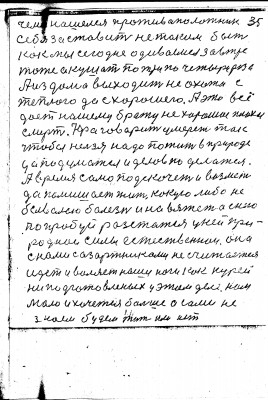 чем нашелся противаположник 35
себя заставит не таким быт
как мы сегодне одиваимся завтре
тоже а кушат по три по четыри раза
А из дома выходит не охота с
теплого да с хорошего. А это всё
дает нашему брату не хорошии
смерт. Нра говарит умереть так
чтобы нелзя надо пожит в природе
да подумат и делов
А время само подскочет и возмет
да помишает жит, какую либо не
бывалою болезн и навяжет а с нею
попробуй растатся у ней при-
родною силы естественною, она
с нами сазартниками не считается
идет и валяет нашу ноги как курей
ни подготовленых у этом деле. нам
мало и хочется болше а сами не
знаем будем жит или нет